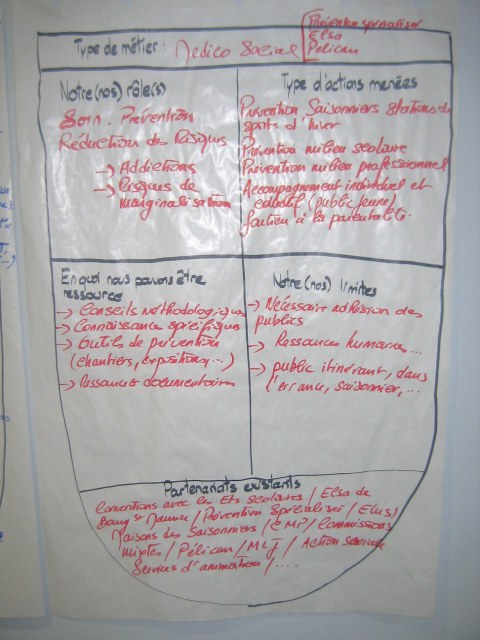 Prévention spécialisée
Elsa
Pélican
Type de métier: Medico Social
Notre(nos) rôle(s)
Soin. Prévention
Réduction des Risques
→ Addictions
→ Risques de
marginalisation
Type d'actions menées
Prévention Saisonniers stations de
sports d'hiver
Prévention milieu scolaire
Prévention milieu professionnel
Accompagnement individuel et
collectif (public jeune)
Soutien à la parentalité.
En quoi nous pouvons être
ressource
→ Conseils méthodologiques
→ Connaissance spécifiques
→ Outils de prévention
(chantiers, expositions,...)
→ Ressources documentaires
Notre(nos) limites
→ Nécessaire adhésion des
publics
→ Ressources humaines...
→ public itinérant, dans
l'errance, saisonnier, ...
Partenariats existants
Conventions avec les Ets scolaires / Elsa de
Bourg St Maurice / Prévention Spécialisée / Elus /
Maisons des Saisonniers / CMP / Commissions
Mixtes / Pélican / MLJ / Action sociale
Services d'animation / ....